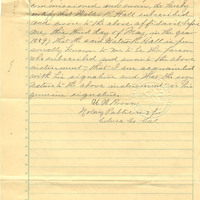 commissioned and sworn, do hereby
certify that Walter R. Hall subscribed
and sworn to the above affidavit before
me this third day of May, in the year
1899; that the said Walter R. Hall is per-
sonally known to me to be the person
who subscribed and swore to the above
instrument; that I am acquainted
with his signature and that the sig-
nature to the above instrument is his
genuine signature.
Notary Public in & for
Co. Cal.